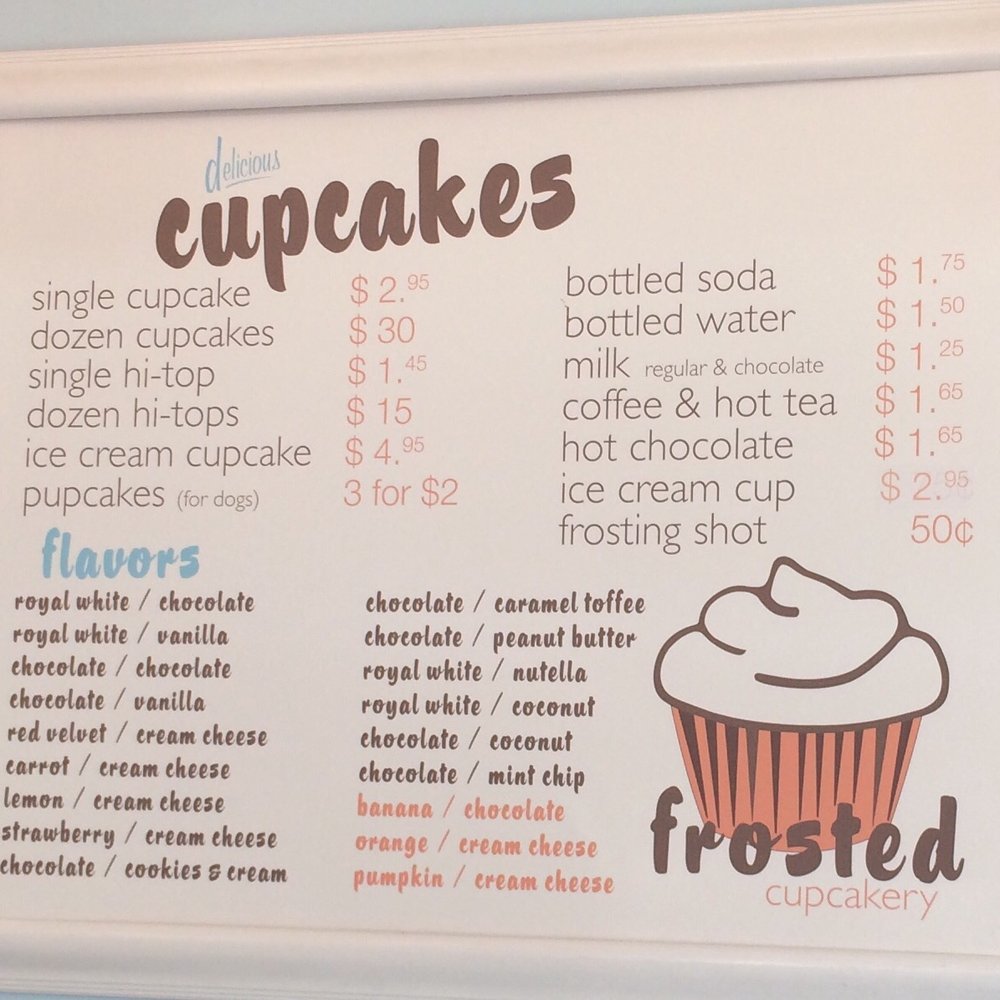 delicious
cupcakes
single cupcake $ 2.95
dozen cupcakes $ 30
single hi-top $ 1.45
dozen hi-tops $ 15
ice cream cupcake $ 4.95
pupcakes (for dogs) 3 for $2
bottled soda $ 1.75
bottled water $ 1.50
milk regular & chocolate $ 1.25
coffee & hot tea $ 1.65
hot chocolate $ 1.65
ice cream cup $ 2.95
frosting shot 50¢
flavors
royal white / chocolate
royal white / vanilla
chocolate / chocolate
chocolate / vanilla
red velvet / cream cheese
carrot / cream cheese
lemon / cream cheese
strawberry / cream cheese
chocolate / cookies & cream
chocolate / caramel toffee
chocolate / peanut butter
royal white / nutella
royal white / coconut
chocolate / coconut
chocolate / mint chip
banana / chocolate
orange / cream cheese
pumpkin / cream cheese
frosted
cupcakery